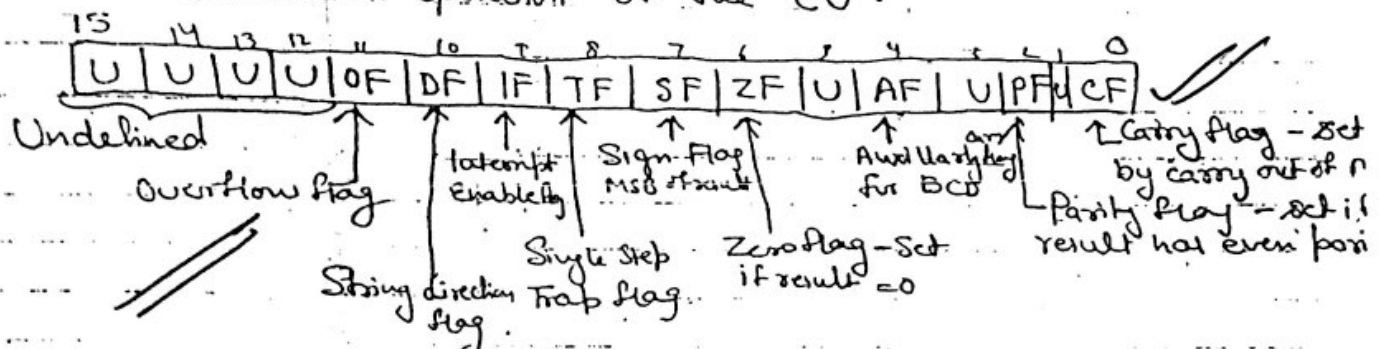 of the CU.
15 14 13 12 11 10 9 8 7 6 5 4 3 2 1 0
U U U U OF DF IF TF SF ZF U AF U PF U CF
Undefined
Overflow flag
String direction
flag.
Interrupt
Enable flag
Single Step
Trap flag.
Sign-Flag
MSB of result
Zero flag - Set
if result =0
Auxillary flag
for BCD
Carry flag - set
by carry out of
Parity flag - set if
result has even pari